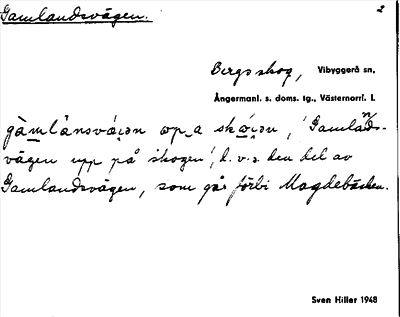 Gamlandsvägen. 2
Bergs skog, Vibyggerå sn,
Ångermanl. s. doms. tg., Västernorrl. l.
'Gamlands-
vägen upp på skogen', d. v. s. den del av
Gamlandsvägen, som går förbi Magdebäcken.
Sven Hiller 1948